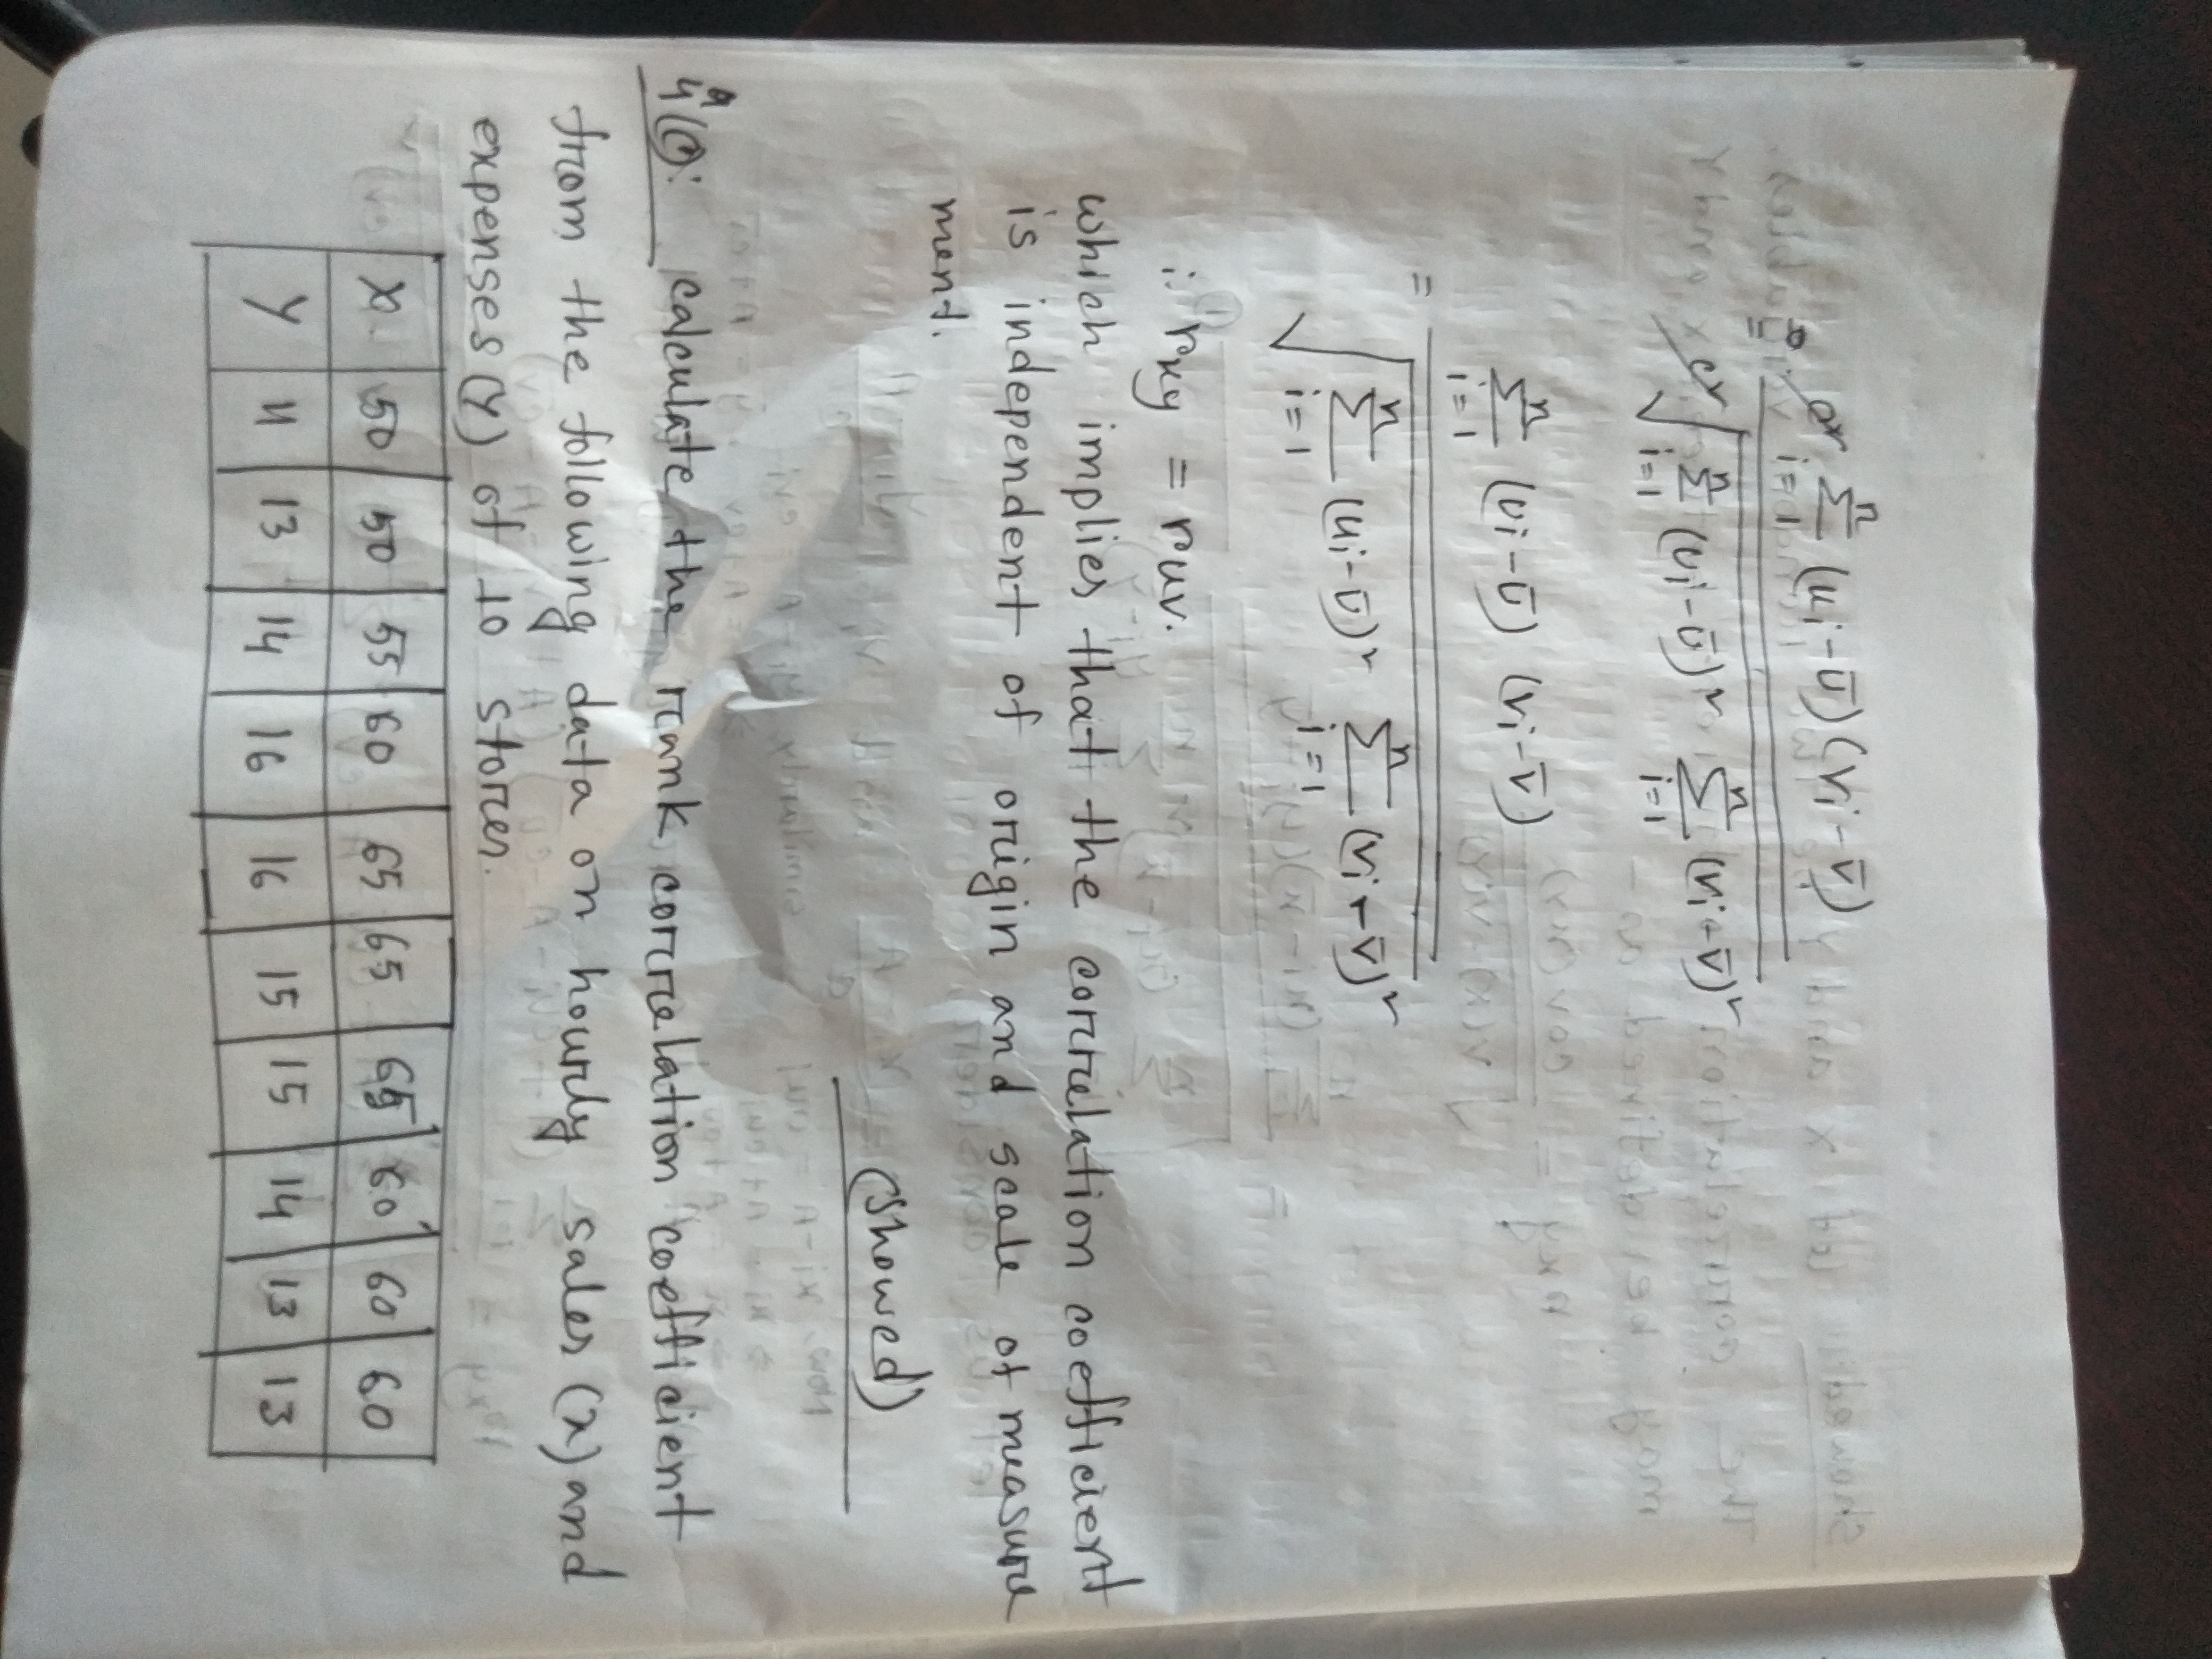 = cd Σ (ui - ū) (vi - v̄) i=1 n
cd √ Σ (ui - ū)² Σ (vi - v̄)² i=1 n i=1 n
= Σ (ui - ū) (vi - v̄) i=1 n
√ Σ (ui - ū)² Σ (vi - v̄)² i=1 n i=1 n
∴ rxy = ruv.
which implies that the correlation coefficient
is independent of origin and scale of measure
ment.
(showed)
calculate the rank correlation coefficient
from the following data on hourly sales (x) and
expenses (Y) of 10 stores.
X 50 50 55 60 65 65 65 60 60 60
Y 11 13 14 16 16 15 15 14 13 13